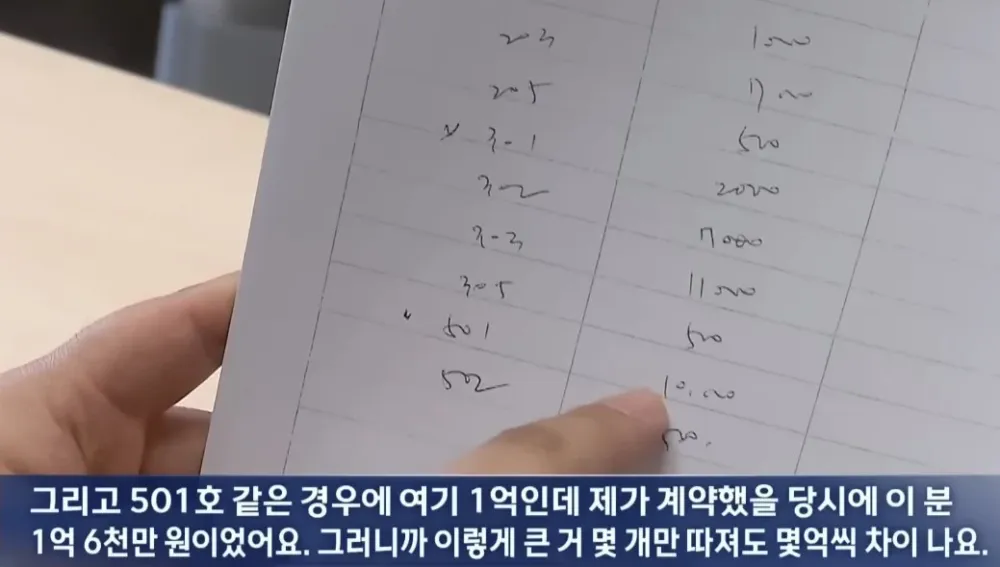 203 1000
205
301 500
302 2000
303 7000
305 11000
501 500
502 10,000
500.
그리고 501호 같은 경우에 여기 1억인데 제가 계약했을 당시에 이 분
1억 6천만 원이었어요. 그러니까 이렇게 큰 거 몇 개만 따져도 몇억씩 차이 나요.